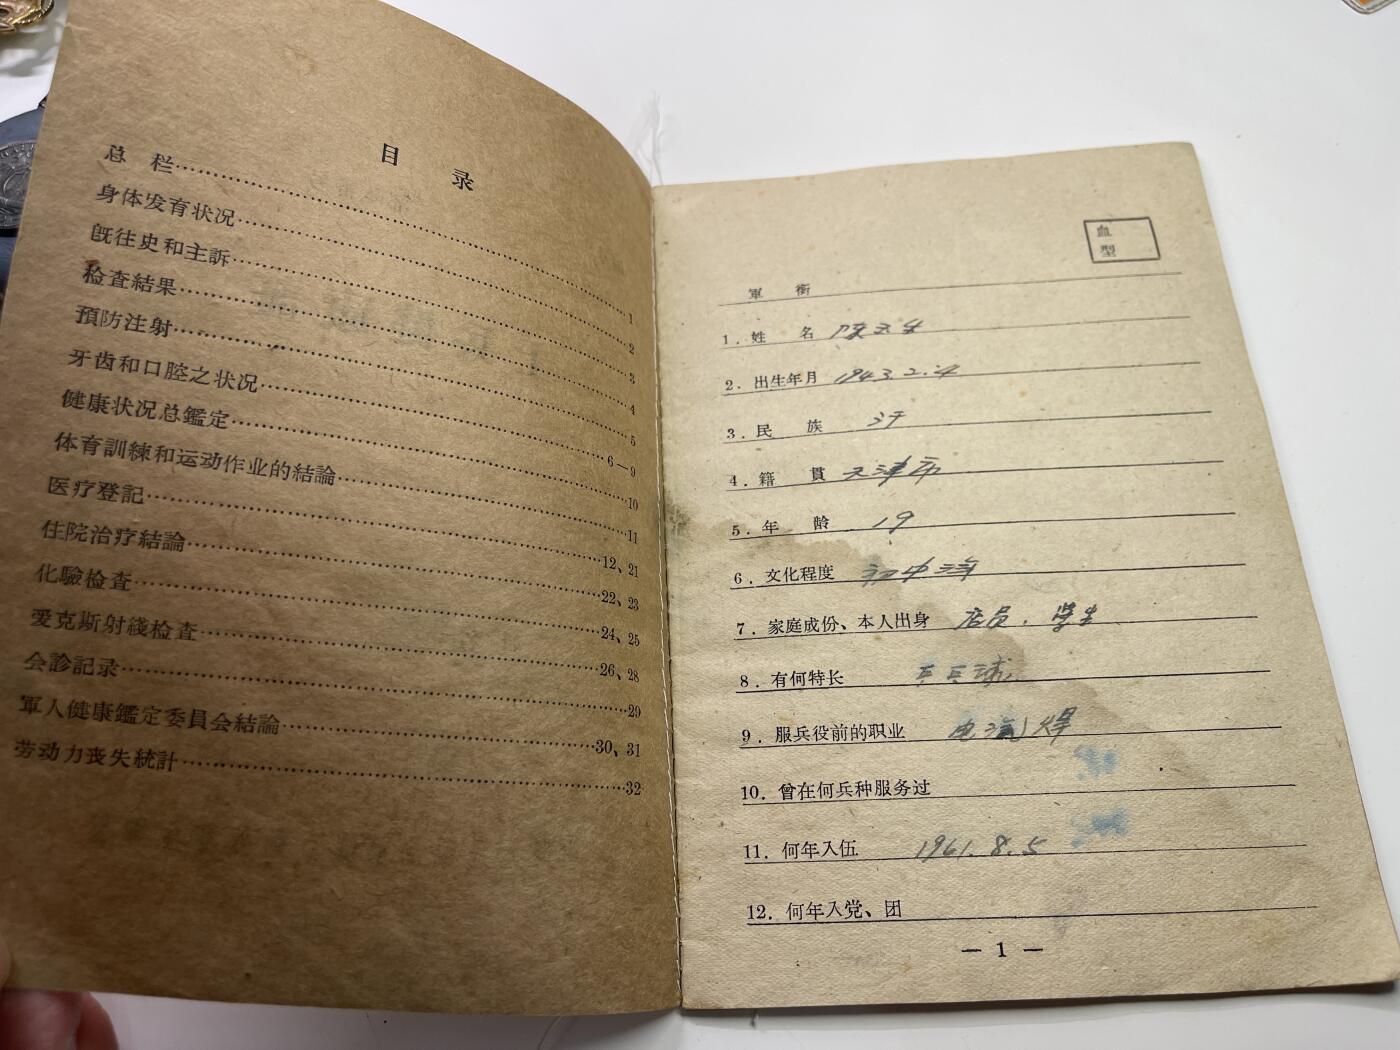 目 录
总 栏……1
身体发育状况……2
旣往史和主訴……3
检查結果……4
預防注射……5
牙齿和口腔之状况……6—9
健康状况总鑑定……10
体育訓練和运动作业的結論……11
医疗登記……12、21
住院治疗結論……22、23
化驗检查……24、25
爱克斯射綫检查……26、28
会診記录……29
軍人健康鑑定委員会結論……30、31
劳动力丧失統計……32
血型
軍 衔
1. 姓 名
2. 出生年月 1943.2.4
3. 民 族 汗
4. 籍 貫 天津市
5. 年 龄 19
6. 文化程度 初中
7. 家庭成份、本人出身 店员. 学生
8. 有何特长 乒乓球
9. 服兵役前的职业 电汽焊
10. 曾在何兵种服务过
11. 何年入伍 1961.8.5
12. 何年入党、团
— 1 —